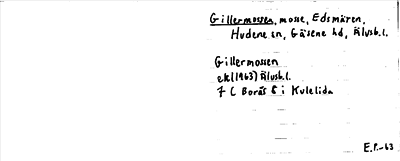 Gillermossen, mosse, Edsmären,
Hudene sn, Gäsene hd, Älvsb.l.
Gillermossen
ek(1963) Älvsb.l.
7 C Borås i Kulelida
E.P.-63